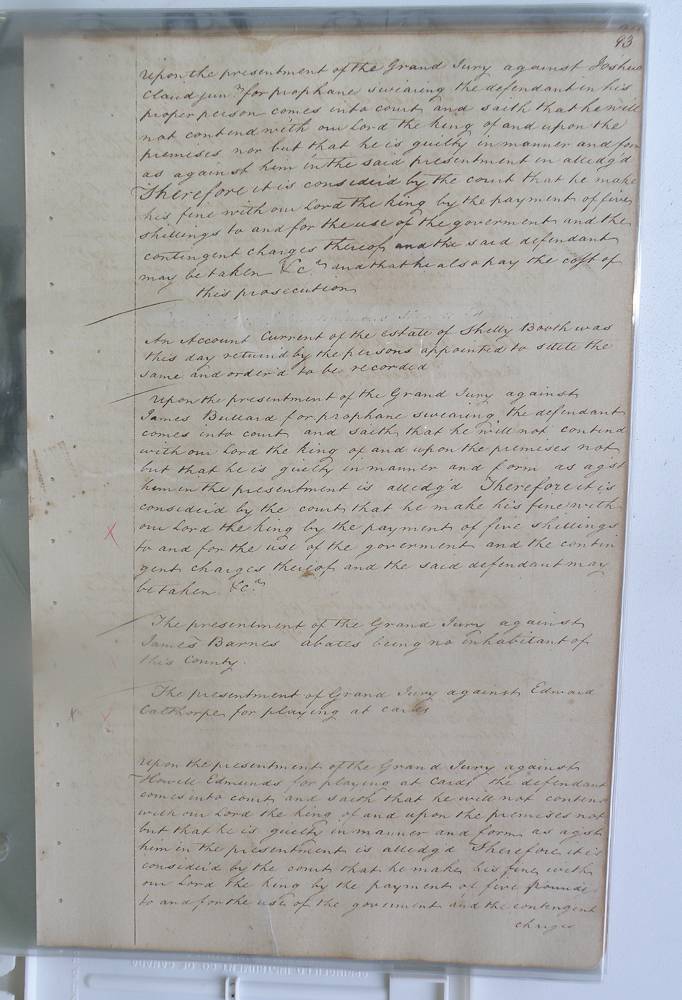 93
Upon the presentment of the Grand Jury against Joshua
Claud junr. for prophane swearing the defendant in his
proper person comes into court and saith that he will
not contend with our Lord the King of and upon the
premises nor but that he is guilty in manner and form
as against him in the said presentment in alledg'd
Therefore it is consider'd by the court that he make
his fine with our Lord the King by the payment of five
shillings to and for the use of the goverment and the
contingent charges thereof and the said defendant
may be taken &c. and that he also pay the cost of
this prosecution
An Account Current of the Estate of Shelly Booth was
this day return'd by the persons appointed to settle the
same and order'd to be recorded
Upon the presentment of the Grand Jury against
James Bullard for prophane swearing the defendant
comes into court and saith that he will not contend
with our Lord the King of and upon the premises not
but that he is guilty in manner and form as agst
him in the presentment is alledg'd Therefore it is
consider'd by the court that he make his fine with
our Lord the King by the payment of five shillings
to and for the use of the goverment and the contin
gent charges thereof and the said defendant may
be taken &c.
The presentment of the Grand Jury against
James Barnes abates being no inhabitant of
this County.
The presentment of Grand Jury against Edward
Calthorpe for playing at cards
Upon the presentment of the Grand Jury against
Howell Edmunds for playing at Cards the defendant
comes into court and saith that he will not contend
with our Lord the King of and upon the premises not
but that he is guilty in manner and form as agst
him in the presentment is alledg'd Therefore it is
consider'd by the court that he make his fine with
our Lord the King by the payment of five pounds
to and for the use of the goverment and the contengent
charges